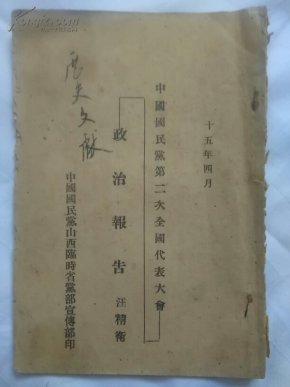 十五年四月
中國國民黨第二次全國代表大會
政治報告 汪精衛
中國國民黨山西臨時省黨部宣傳部印
歷史文獻